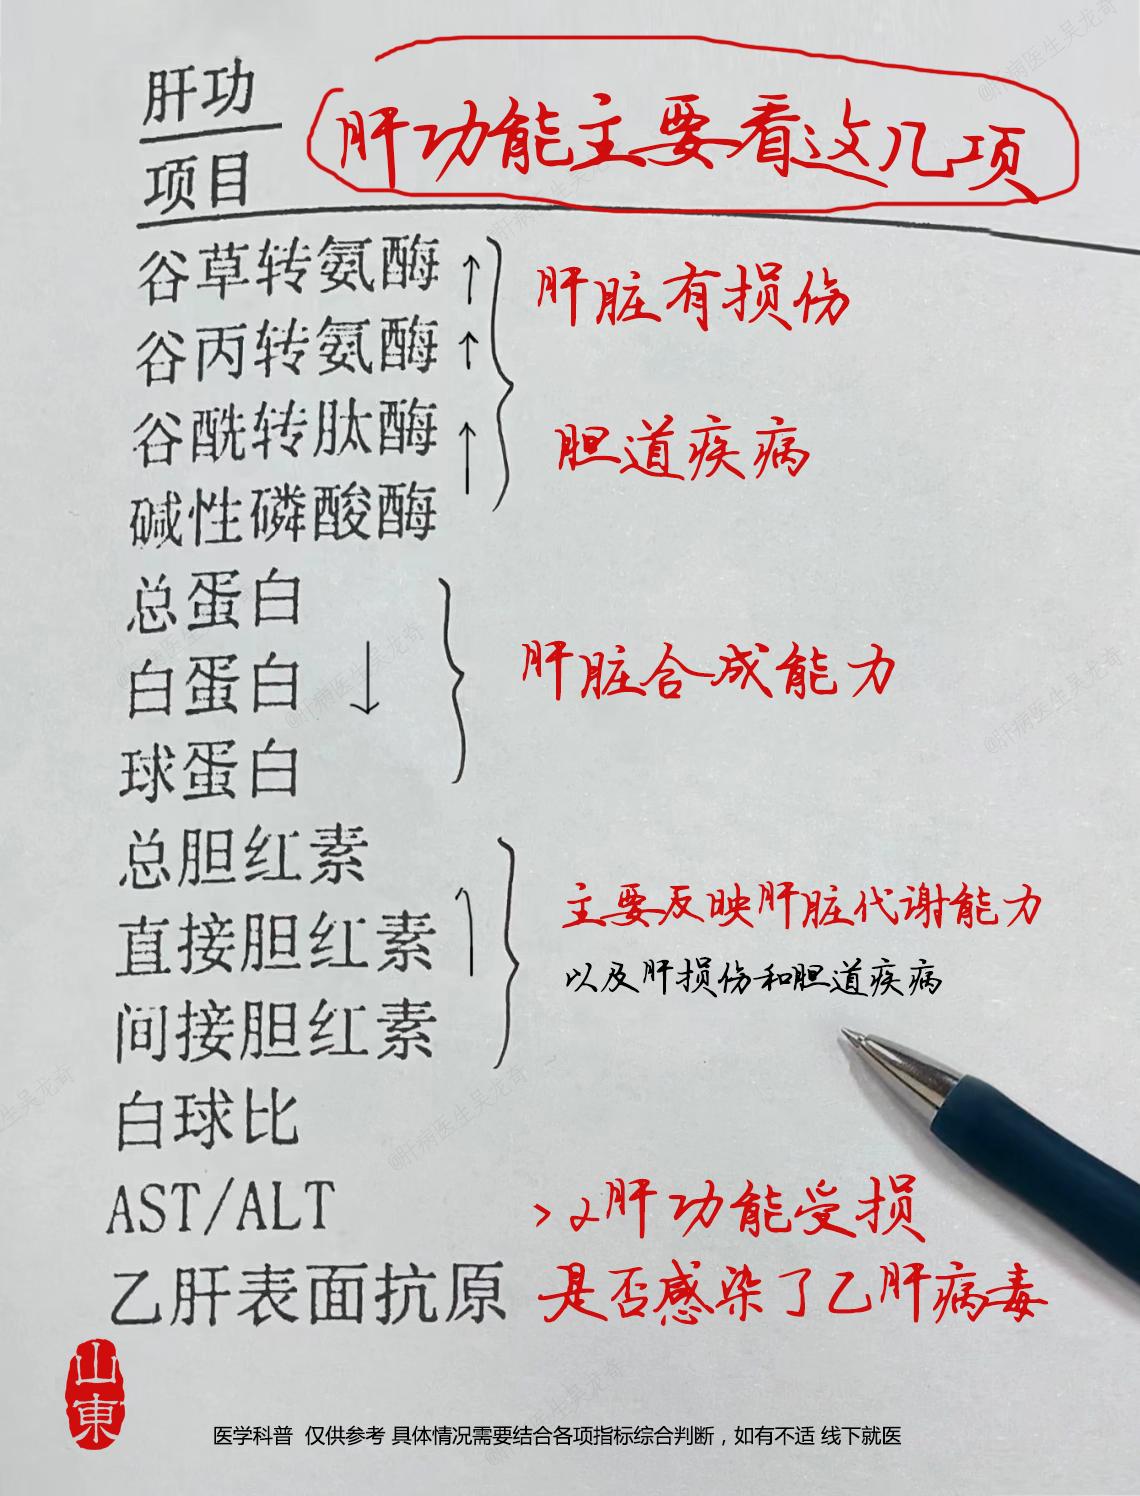 肝功
肝功能主要看这几项
项目
谷草转氨酶 ↑
肝脏有损伤
谷丙转氨酶 ↑
谷酰转肽酶 ↑
胆道疾病
碱性磷酸酶
总蛋白
白蛋白 ↓
肝脏合成能力
球蛋白
总胆红素
主要反映肝脏代谢能力
直接胆红素 ↑
以及肝损伤和胆道疾病
间接胆红素
白球比
AST/ALT >2肝功能受损
乙肝表面抗原 是否感染了乙肝病毒
山東
医学科普 仅供参考 具体情况需要结合各项指标综合判断，如有不适 线下就医
@肝病医生吴龙奇